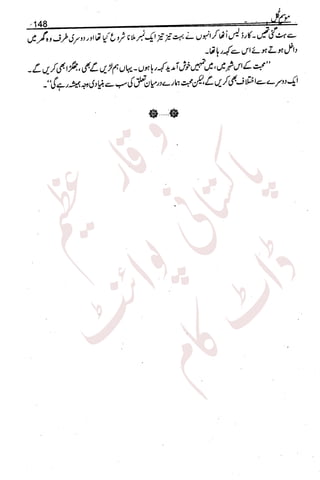 موسمِ گُل
148
سے ہٹ گئی تھیں۔ کارڈ لیس اُٹھا کر انہوں نے بہت تیز تیز ایک نمبر ملانا شروع کیا تھا اور دوسری طرف وہ گھر میں
داخل ہوتے ہوئے اس سے کہہ رہا تھا۔
"محبت کے اس شہر میں، میں تمہیں خوش آمدید کہہ رہا ہوں۔ یہاں ہم لڑیں گے بھی، جھگڑا بھی کریں گے۔
ایک دوسرے سے اختلاف بھی کریں گے، لیکن محبت ہمارے درمیان تعلق کی سب سے بنیادی وجہ ہمیشہ رہے گی"۔
وقار عظیم
پاکستانی پوائنٹ
ڈاٹ کام